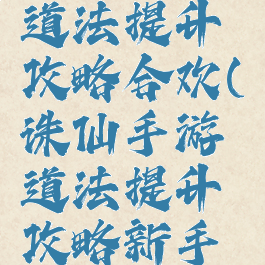 道法提升
攻略合欢(
诛仙手游
道法提升
攻略新手